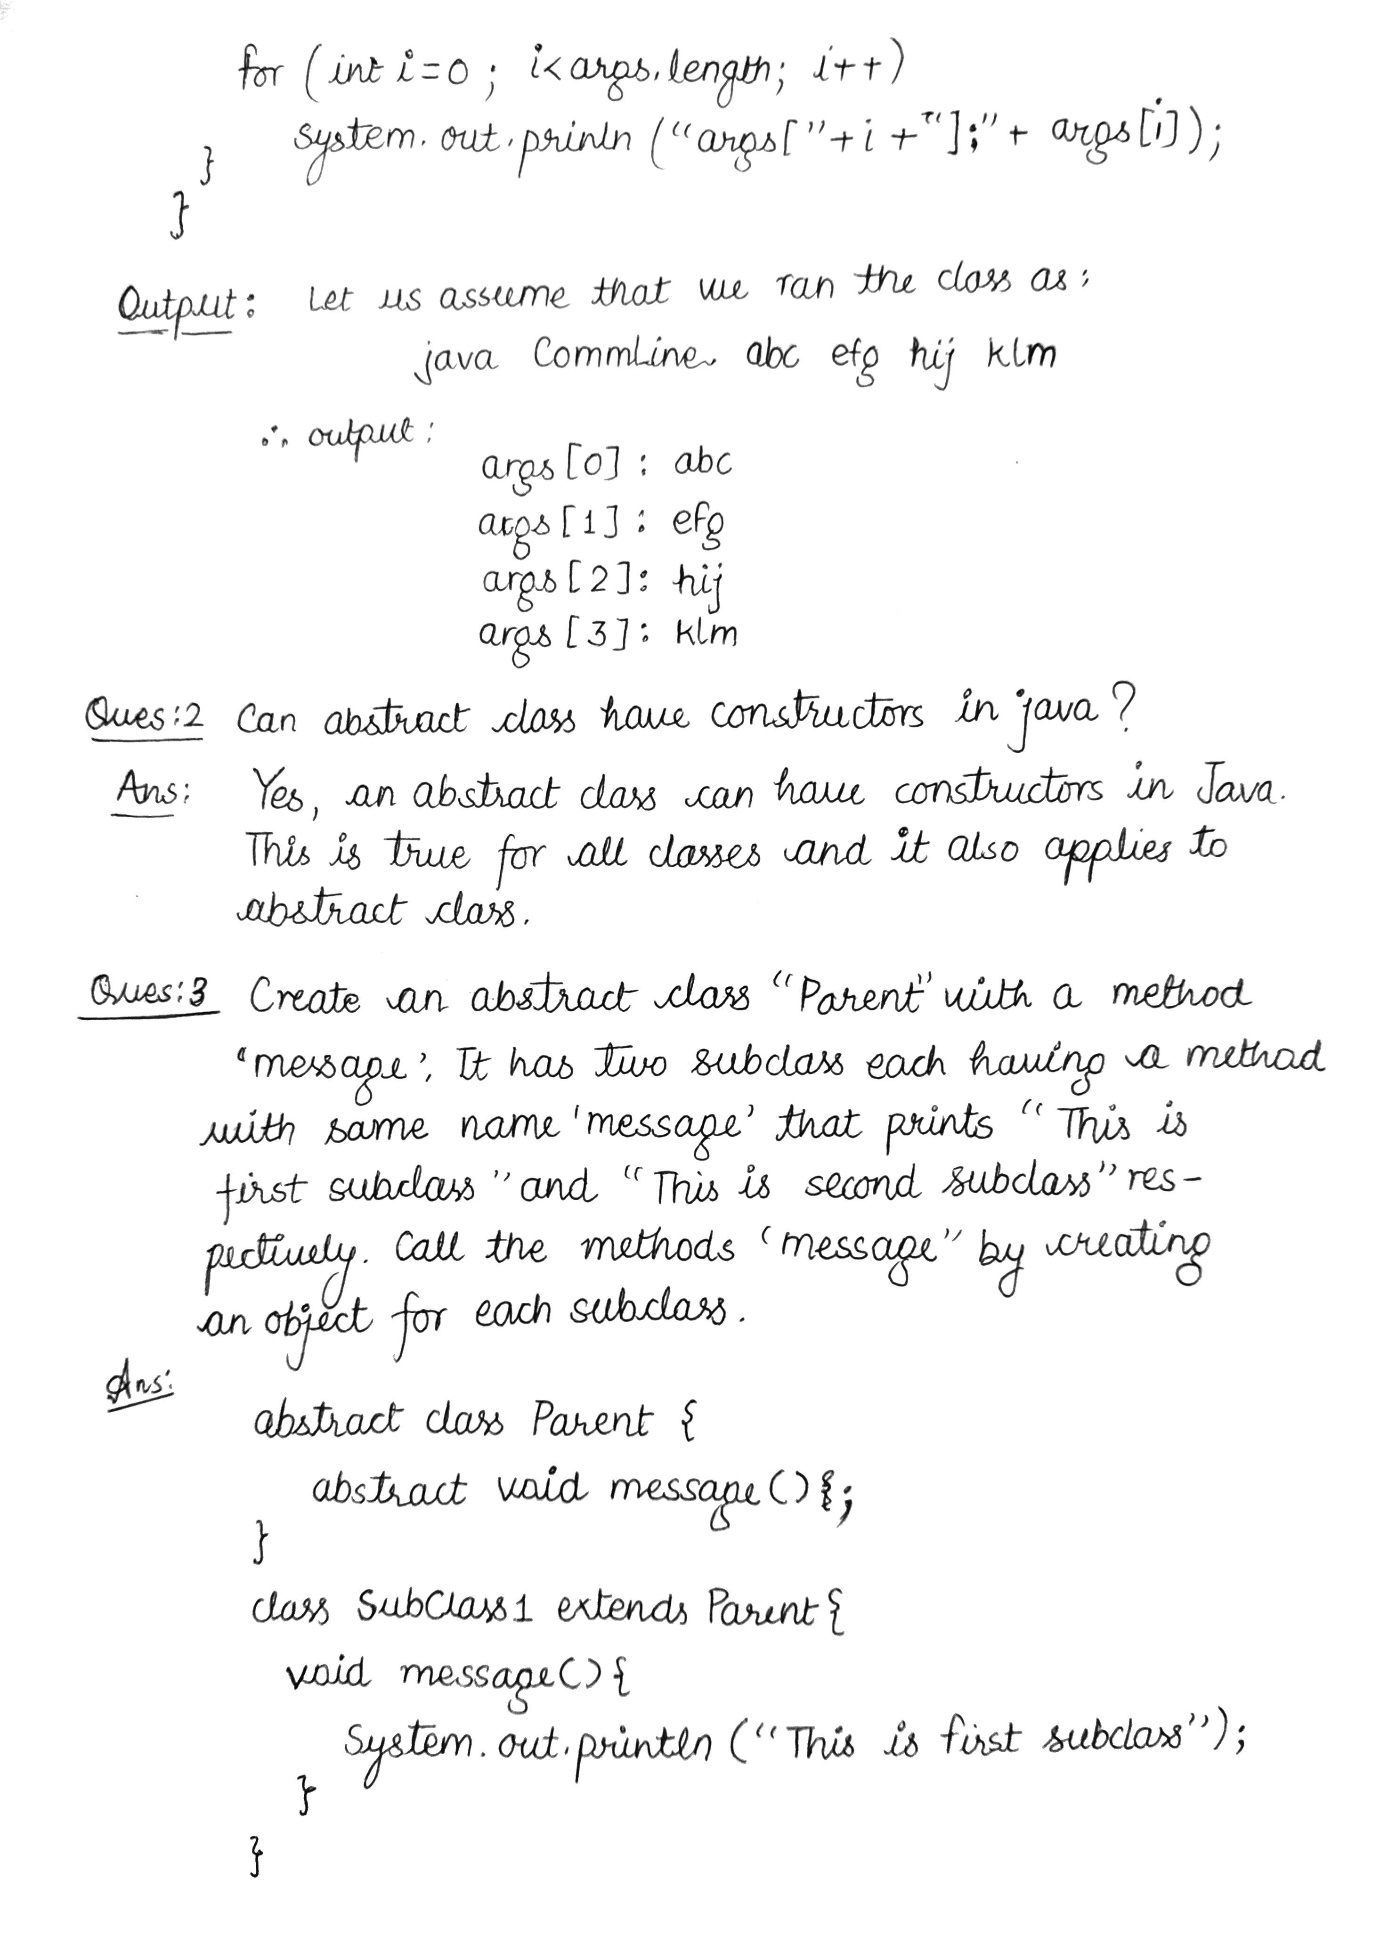 for (int i=0 ; i<args.length; i++)
system.out.prinln ("args["+i+"];"+ args[i]);
}
}
Output: Let us assume that we ran the class as:
java CommLine abc efg hij klm
∴ output:
args[0] : abc
args[1] : efg
args[2]: hij
args[3]: klm
Ques:2 Can abstract class have constructors in java?
Ans: Yes, an abstract class can have constructors in Java.
This is true for all classes and it also applies to
abstract class.
Ques:3 Create an abstract class "Parent" with a method
'message'. It has two subclass each having a method
with same name 'message' that prints "This is
first subclass" and "This is second subclass" res-
pectively. Call the methods 'message" by creating
an object for each subclass.
Ans:
abstract class Parent {
abstract void message();
}
class SubClass1 extends Parent{
void message(){
System.out.println ("This is first subclass");
}
}